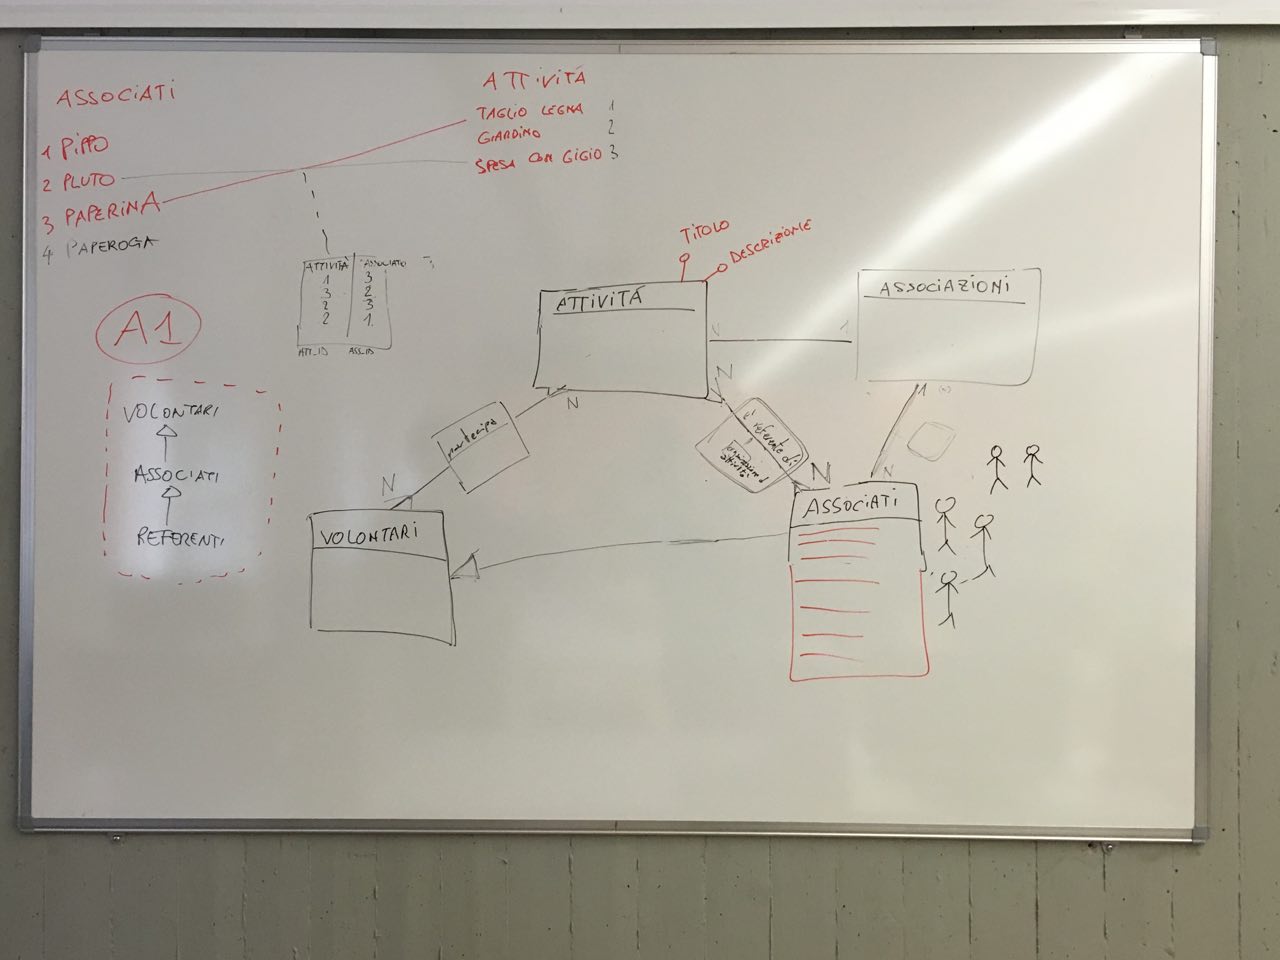 ASSOCIATI
1 PIPPO
2 PLUTO
3 PAPERINA
4 PAPEROGA
ATTIVITÀ
TAGLIO LEGNA 1
GIARDINO 2
SPESA CON GIGIO 3
ATTIVITÀ ASSOCIATO
1 3
3 2
2 3
2 1
ATT_ID ASS_ID
A1
VOLONTARI
ASSOCIATI
REFERENTI
TITOLO
DESCRIZIONE
ATTIVITÁ
N
N
1
ASSOCIAZIONI
1 (N)
N
partecipa
N
N
è referente di
attività
N
VOLONTARI
ASSOCIATI